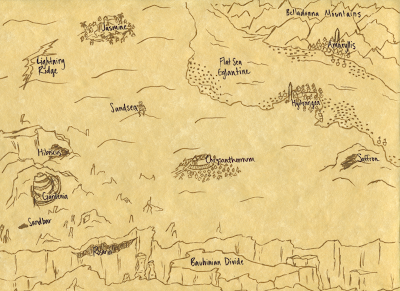 Belladonna Mountains
Jasmine
Amaryllis
Lightning
Ridge
Flat Sea
Eglantine
Hydrangea
Sundsea
Hibiscus
Chrysanthemum
Saffron
Gardenia
Sandbar
Bauhinian Divide